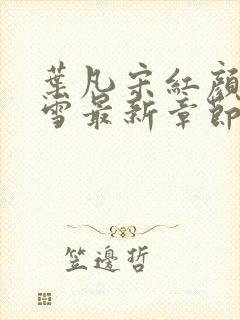 葉凡宋紅顔
雪最新章節
笠邊哲